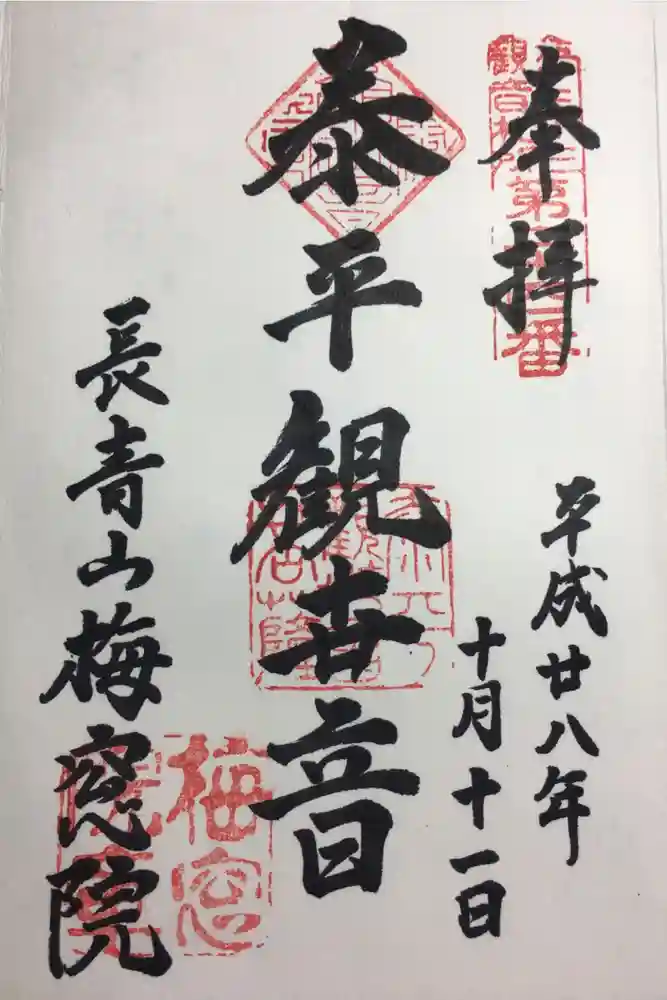 奉拝
平成廿八年
十月十一日
泰平観世音
長青山梅窓院